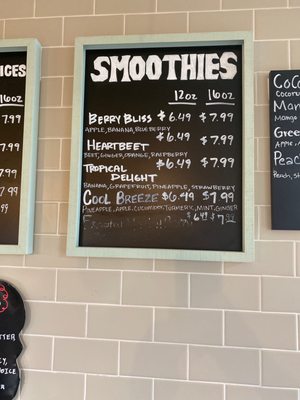 SMOOTHIES
12oz 16oz
BERRY BLISS $6.49 $7.99
APPLE, BANANA, BLUEBERRY
HEARTBEET $6.49 $7.99
BEET, GINGER, ORANGE, RASPBERRY
TROPICAL DELIGHT $6.49 $7.99
BANANA, GRAPEFRUIT, PINEAPPLE, STRAWBERRY
COOL BREEZE $6.49 $7.99
PINEAPPLE, APPLE, CUCUMBER, TURMERIC, MINT, GINGER
$6.49 $7.99
ICES
16oz
7.99
7.99
7.99
7.99
7.99
COCO
MANGO
Mango
Gree
Apple
Peac